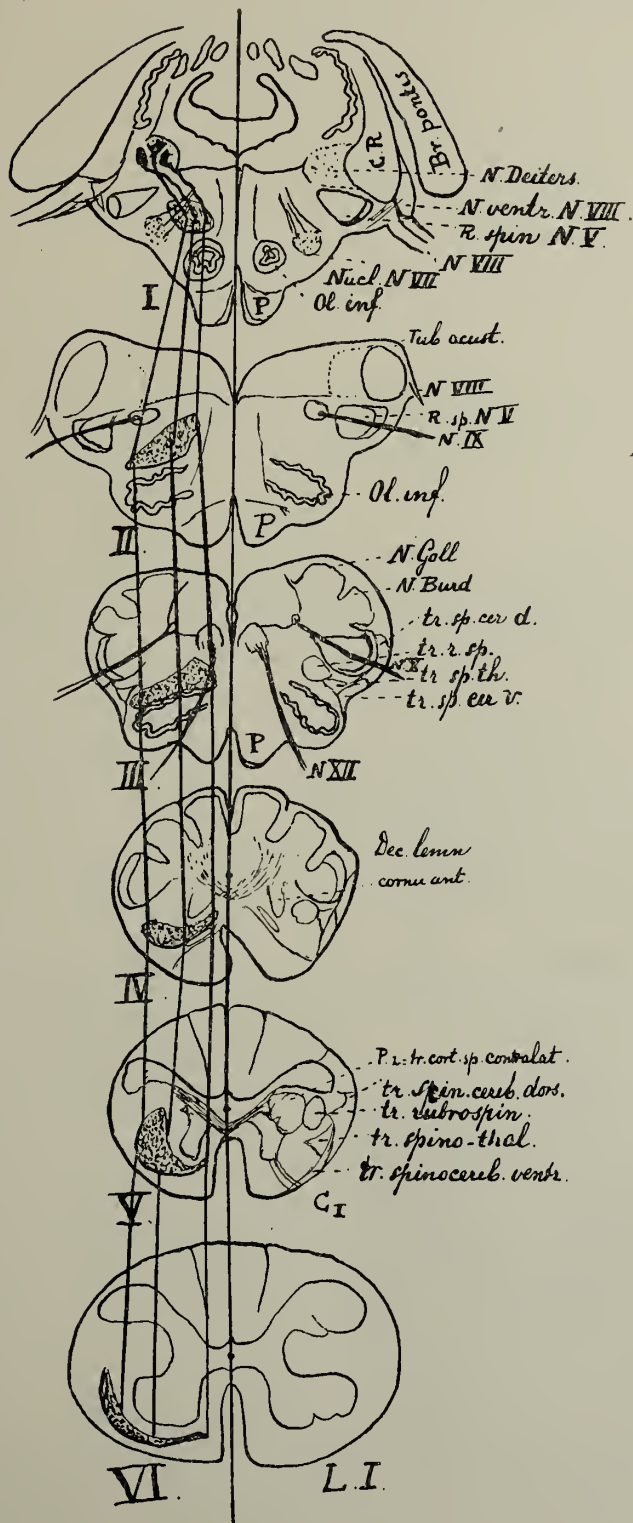 Br. pontis
C.R.
N. Deiters.
N. ventr. N. VIII.
R. spin N. V.
N VIII
Nucl. N VII
Ol. inf.
I
P
Tub acust.
N VIII
R. sp. N V
N. IX
Ol. inf.
II
P
N. Goll
N. Burd
tr. sp. cer d.
tr. r. sp.
N X
tr sp. th.
tr. sp. cer v.
III
P
N XII
Dec. lemn
cornu ant.
IV
P. z. tr. cort. sp. contralat.
tr. spin. cereb. dors.
tr. rubrospin.
tr. spino-thal.
tr. spinocereb. ventr.
V
C I
VI.
L. I.